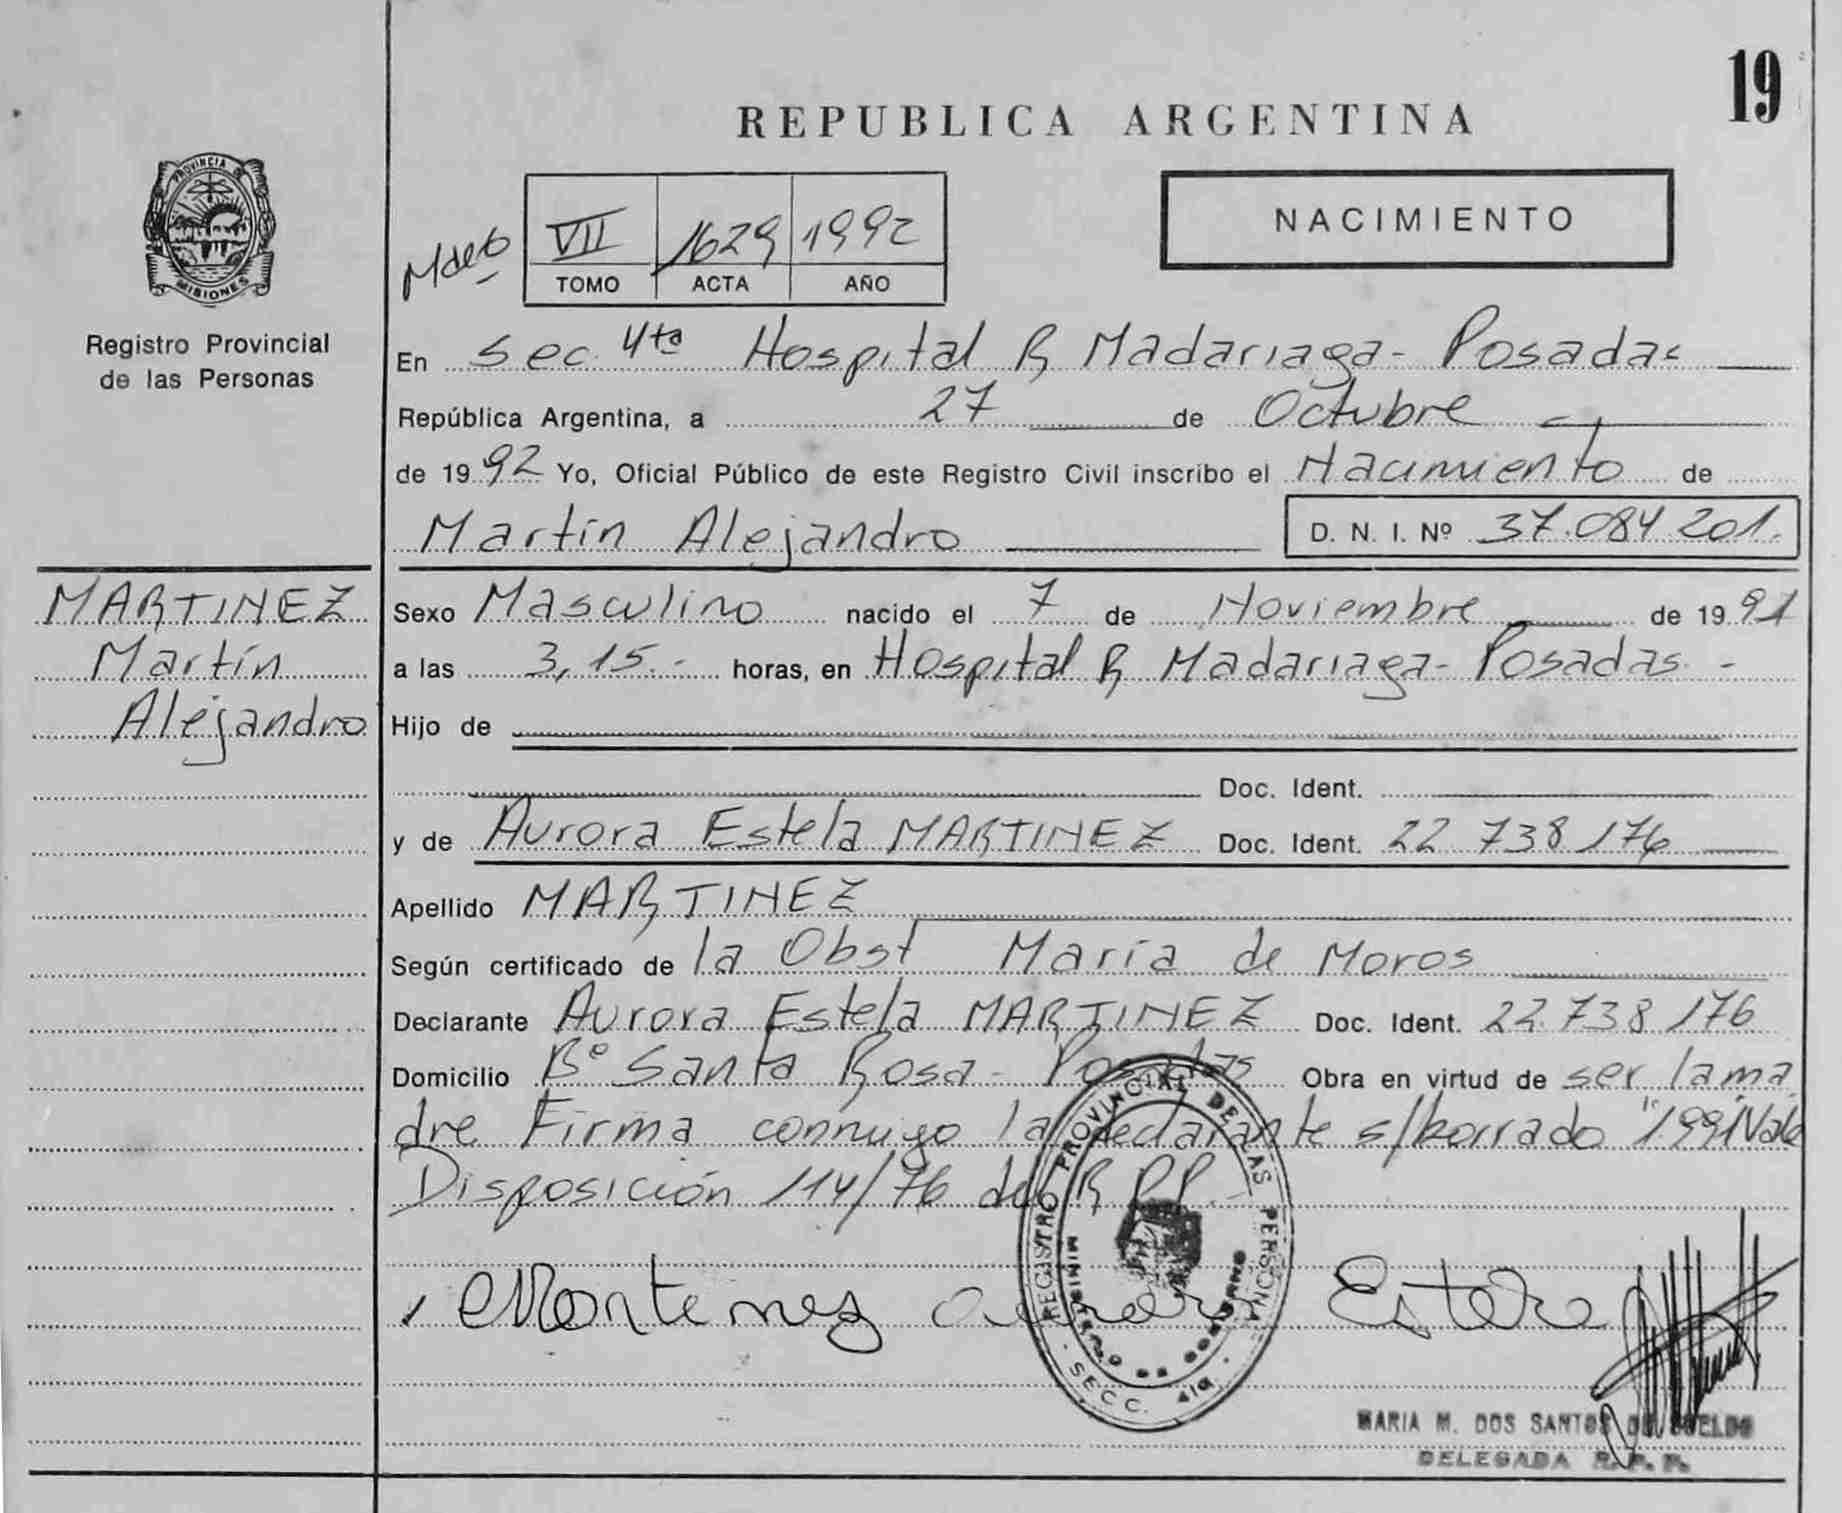 19
REPUBLICA ARGENTINA
PROVINCIA DE
MISIONES
Registro Provincial
de las Personas
VII 1629 1992
TOMO ACTA AÑO
NACIMIENTO
En Sec. 4ta Hospital R Madariaga - Posadas
República Argentina, a 27 de Octubre
de 1992 Yo, Oficial Público de este Registro Civil inscribo el Nacimiento de
Martín Alejandro D. N. I. Nº 37.084 201.
MARTINEZ
Martín
Alejandro
Sexo Masculino nacido el 7 de Noviembre de 1991
a las 3,15.- horas, en Hospital R Madariaga - Posadas -
Hijo de
Doc. Ident.
y de Aurora Estela MARTINEZ Doc. Ident. 22 738 176
Apellido MARTINEZ
Según certificado de la Obst María de Moros
Declarante Aurora Estela MARTINEZ Doc. Ident. 22.738 176
Domicilio Bº Santa Rosa - Posadas Obra en virtud de ser la ma
dre Firma conmigo la declarante s/borrado "1991 Vale
Disposición 114/76 del R.P.P.
Estela
REGISTRO PROVINCIAL DE LAS PERSONAS
MINISTERIO DE GOBIERNO
SECC. 4ta
MARIA M. DOS SANTOS DE
DELEGADA R. P. P.